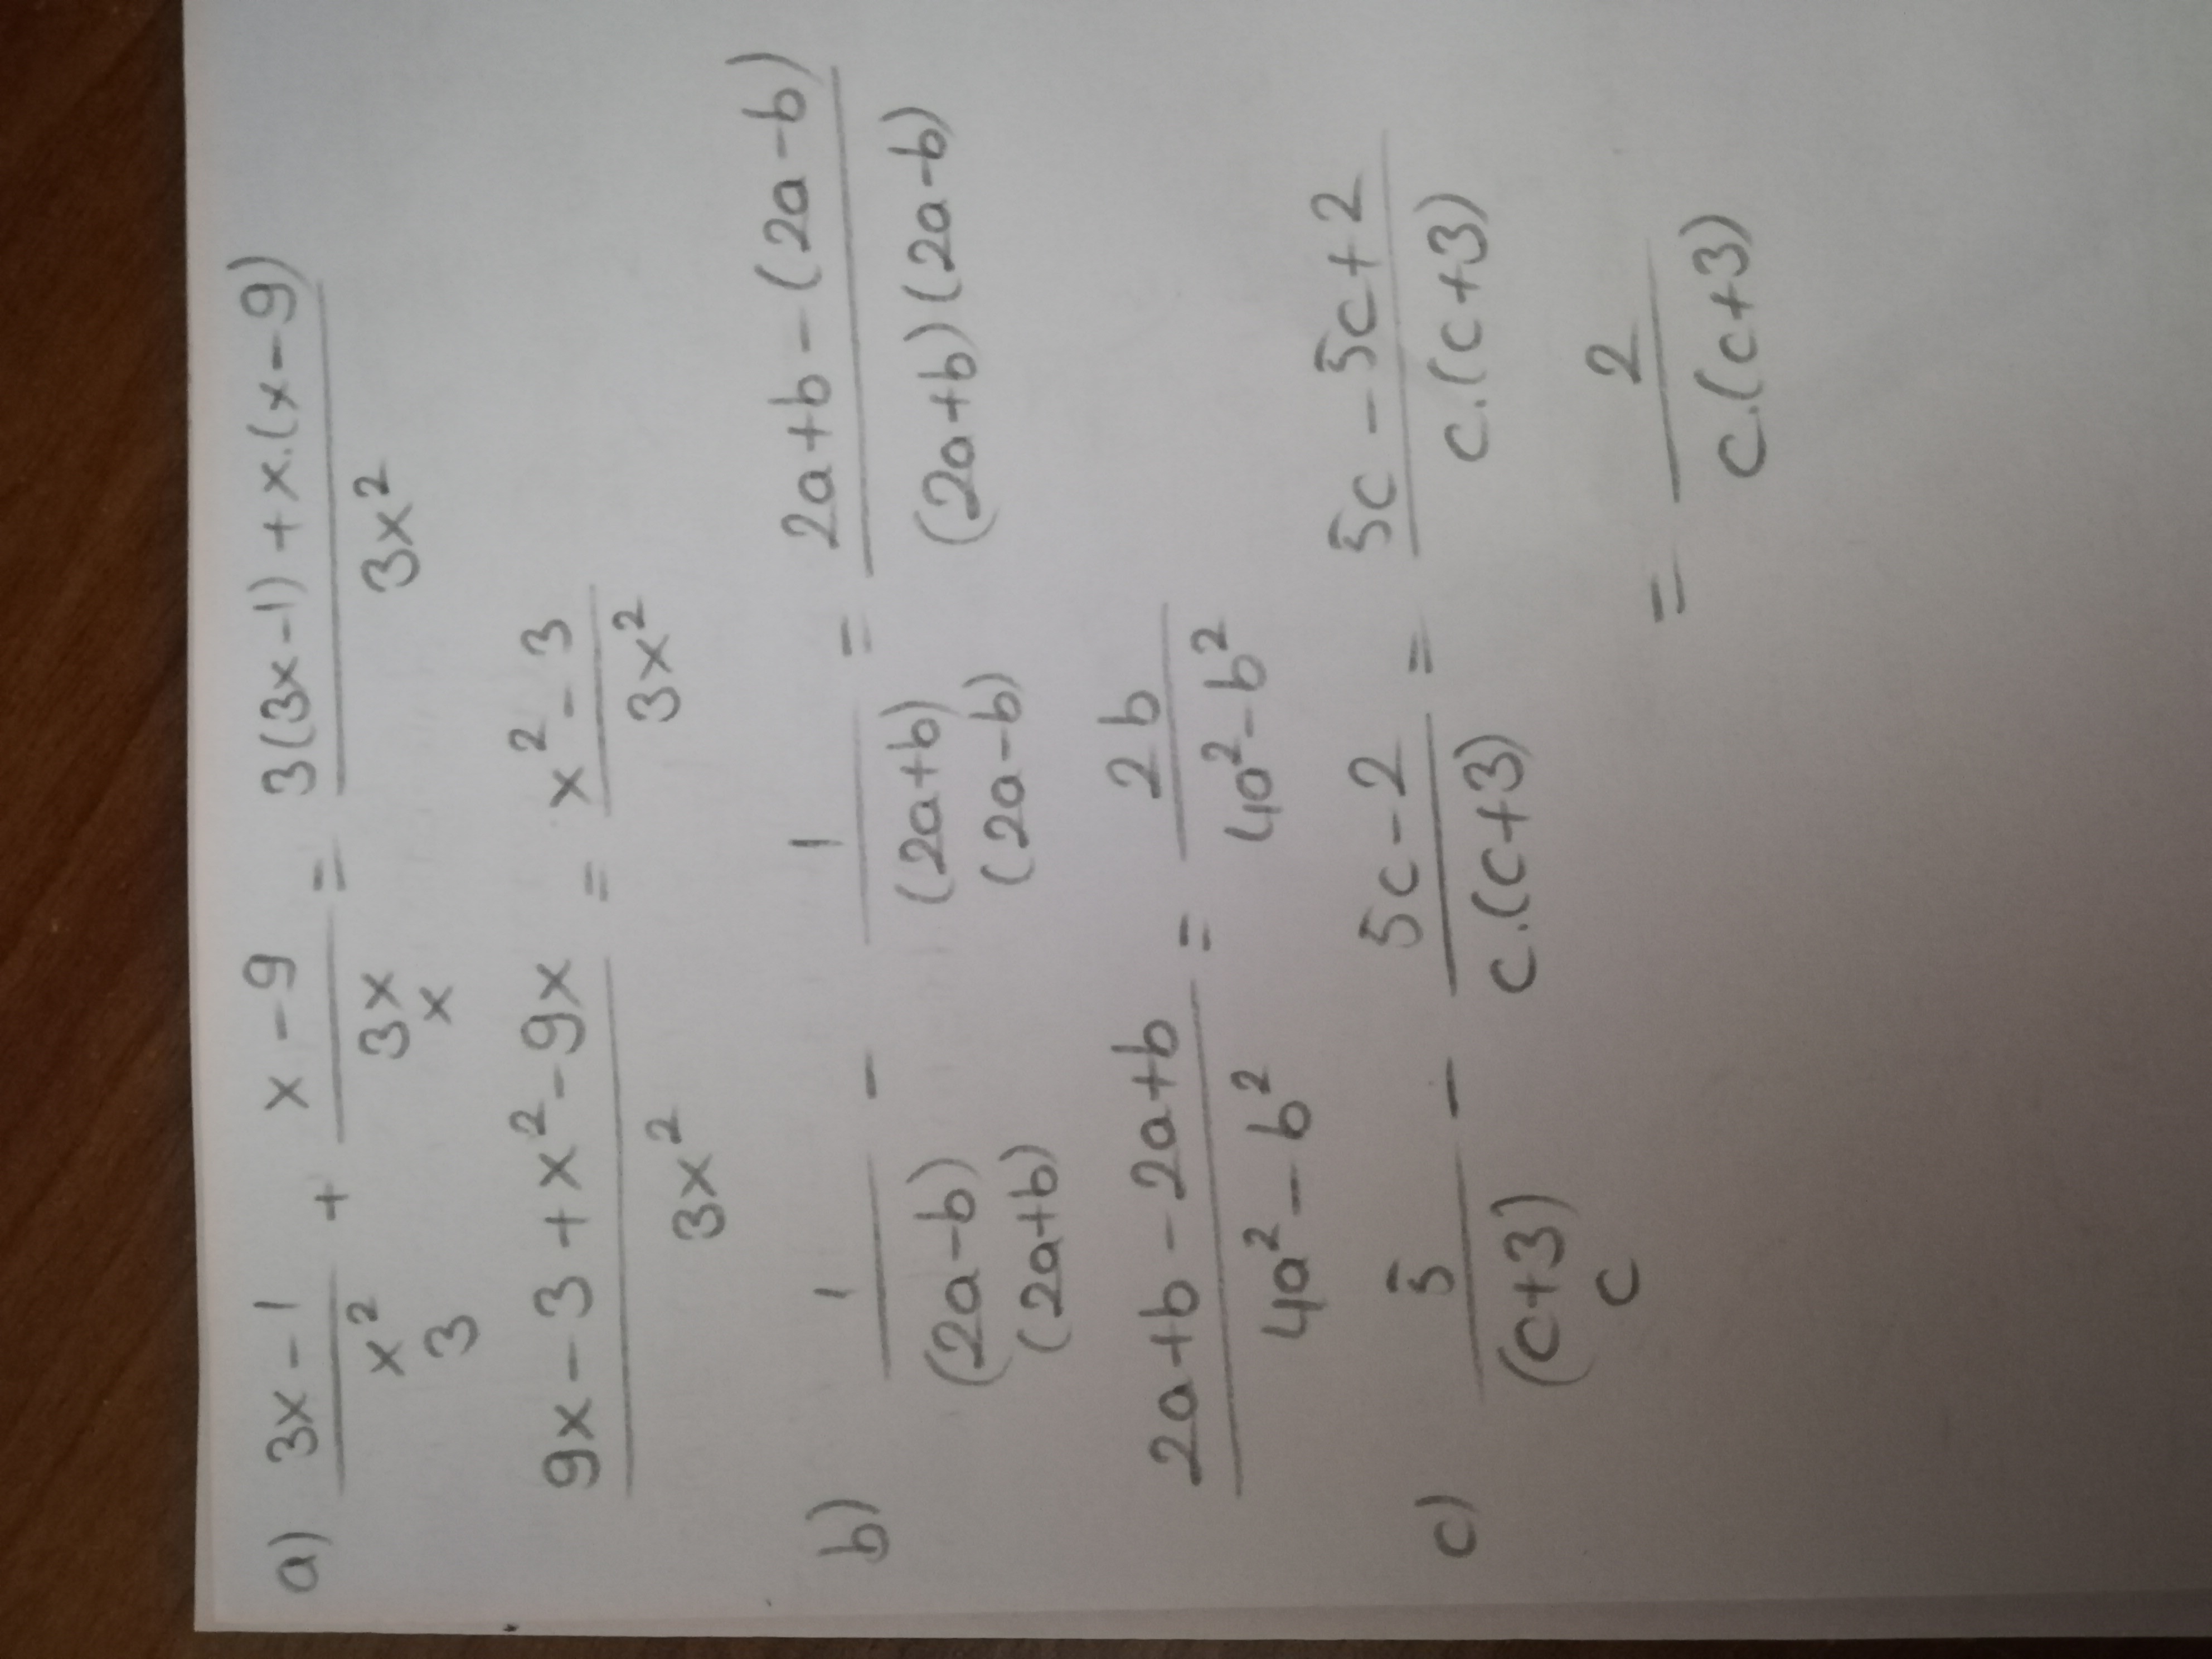 a) (3x-1)/x² + (x-9)/3x = (3(3x-1)+x.(x-9))/3x²
3 x
(9x-3+x²-9x)/3x² = (x²-3)/3x²
b) 1/(2a-b) - 1/(2a+b) = (2a+b-(2a-b))/(2a+b)(2a-b)
(2a+b) (2a-b)
(2a+b-2a+b)/(4a²-b²) = 2b/(4a²-b²)
c) 5/(c+3) - (5c-2)/c.(c+3) = (5c-5c+2)/c.(c+3)
c
= 2/c.(c+3)